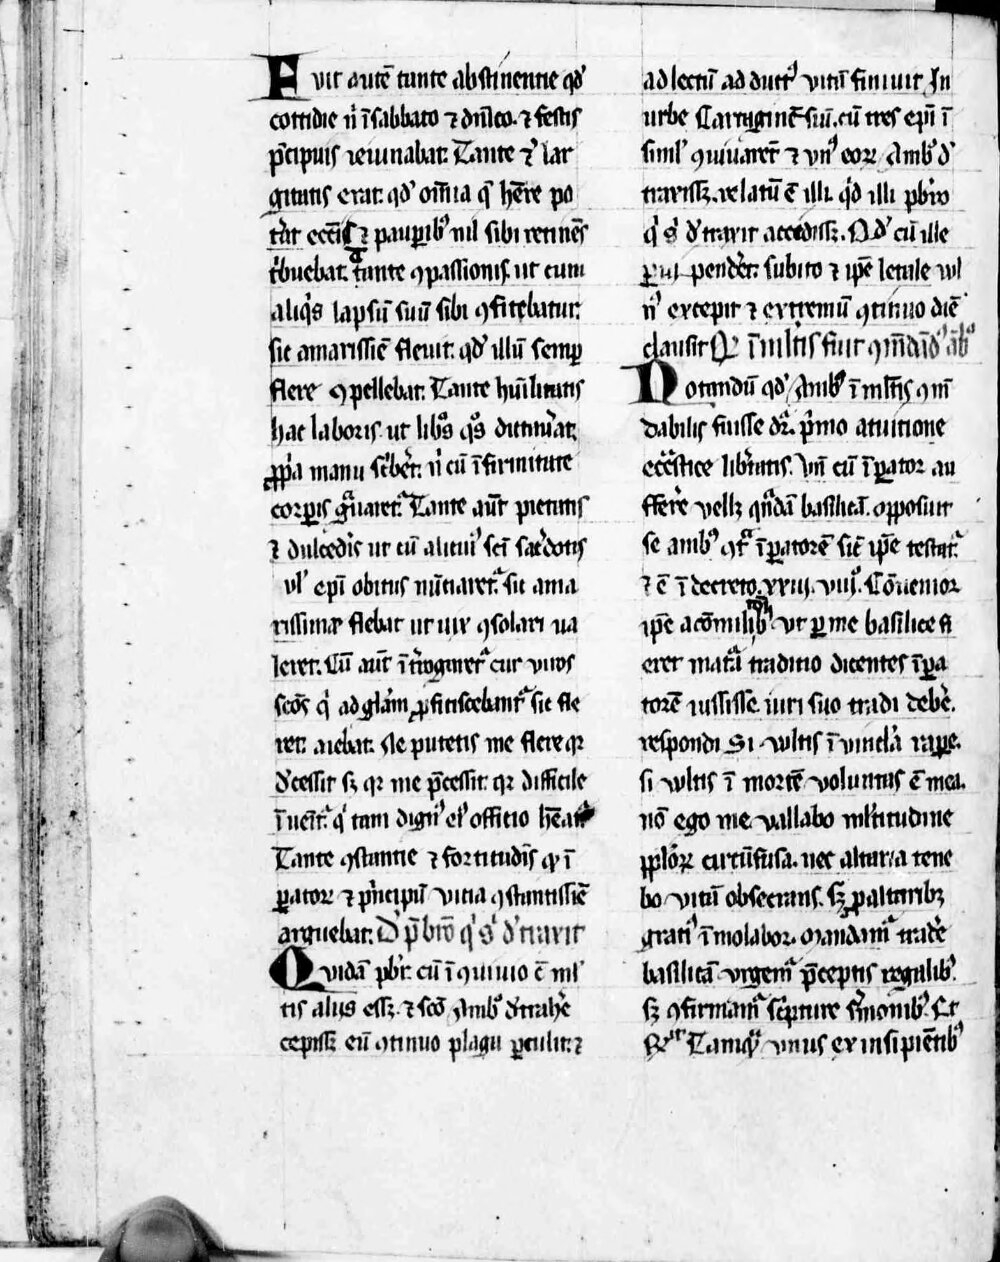 Fuit autē tante abstinentie qd'
cottidie n̄ ī sabbato ⁊ dn̄ico. ⁊ festis
p̄cipuis ieiunabat. Tante ⁊ᵒ lar
gitatis erat. qd' om̄ia q̄ hēre po
tᵃat ecctīs ⁊ pauꝑibꝰ nil sibi retinēs
tⁱbuebat. tante ꝯpassionis. ut cum
aliqⁱs lapsū suū sibi ꝯfitebatur.
sic amarissīe fleuit. qd' illū semꝑ
flere ꝯpellebat. Tante hūilitatis
hac laboris. ut libᵒs qᵒs dictauᵃat.
ꝓpᵃa manu scͥbet. n̄ cū īfirmitate
corꝑis gᵃuaretᵘ. Tante aūt pietatis
⁊ dulcedīs ut cū alicuiꝰ scī sacᵈotis
ul' epī obitus nūciaretᵘ. sic ama
rissime flebat ut uix ꝯsolari ua
leret. Cū aūt ītᵉrogaretᵘ cur uiros
scōs qⁱ ad glām ꝓficiscebantᵘ sic fle
ret. aiebat. Ne putetis me flere qꝛ
dᵉcessit sꝫ qꝛ me p̄cessit. qꝛ difficile
īuenitᵘ. qⁱ tam dignꝰ eiꝰ officio hēatᵘ
Tante ꝯstantie ⁊ fortitudīs qꝛ ī
ꝑatorꝫ ⁊ pⁱncipū uicia ꝯstantissīe
arguebat. D' p̄bro qⁱ sⁱ dᵉtraxit
Quidā pbr̄. cū ī ꝯuiuio cū ml'
tis aliis essꝫ. ⁊ scō Ambᵒ dᵉtrahᵉe
cepissꝫ eū ꝯtinuo plaga ꝑculit. ⁊
ad lectū ad ductꝰ uitā finiuit. In
urbe Cartaginēsiū. cū tres epī ī
simi'l ꝯuiuarēt ⁊ unꝰ eorꝫ Ambᵒ dᵉ
traxissꝫ. relatū ē illi. qd' illi pbr̄o
qⁱ sⁱ dᵉtraxit accidissꝫ. Qd' cū ille
ꝑui pendet. subito ⁊ ip̄e letale uul
nꝰ excepit ⁊ extremū ꝯtinuo diē
clausit. Qꝛ ī multis fuit ꝯm̄dādꝰ ābꝰ
Notandū qd' Ambꝰ ī ml'tis ꝯm̄
dabilis fuisse dr̄. pⁱmo a tuitione
ecclᵉstice libᵉtatis. Vn̄ cū īꝑator au
fferre uellꝫ qn̄dā basilicā. opposuit
se ambꝰ ꝯtᵃ īꝑatorē sic̄ ip̄e testatᵘ.
⁊ ē ī decreto. xxiii. viii. Cōuenior
ip̄e a comitibꝰ ut ꝑ me basilice fi
eret matᵃ traditio dicentes īꝑa
torē iussisse. iuri suo tradi debᵉe.
respondi Si uultis ī uincl'a rape.
si uultis ī mortē uoluntas ē mea.
nō ego me uallabo ml'titudine
ppl'orꝫ circūfusa. nec altaria tene
bo uitā obsecrans. sꝫ ꝓ altaribꝫ
gratiꝰ īmolabor. Mandamᵘ trade
basilicā. urgemᵘ p̄ceptis regalibꝰ.
sꝫ ꝯfirmamᵘ scripture sermonibꝰ. Et
Tamqᵃ unus ex insipiētibꝰ